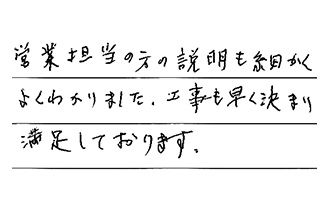 営業担当の方の説明も細かく
よくわかりました。工事も早く決まり
満足しております。